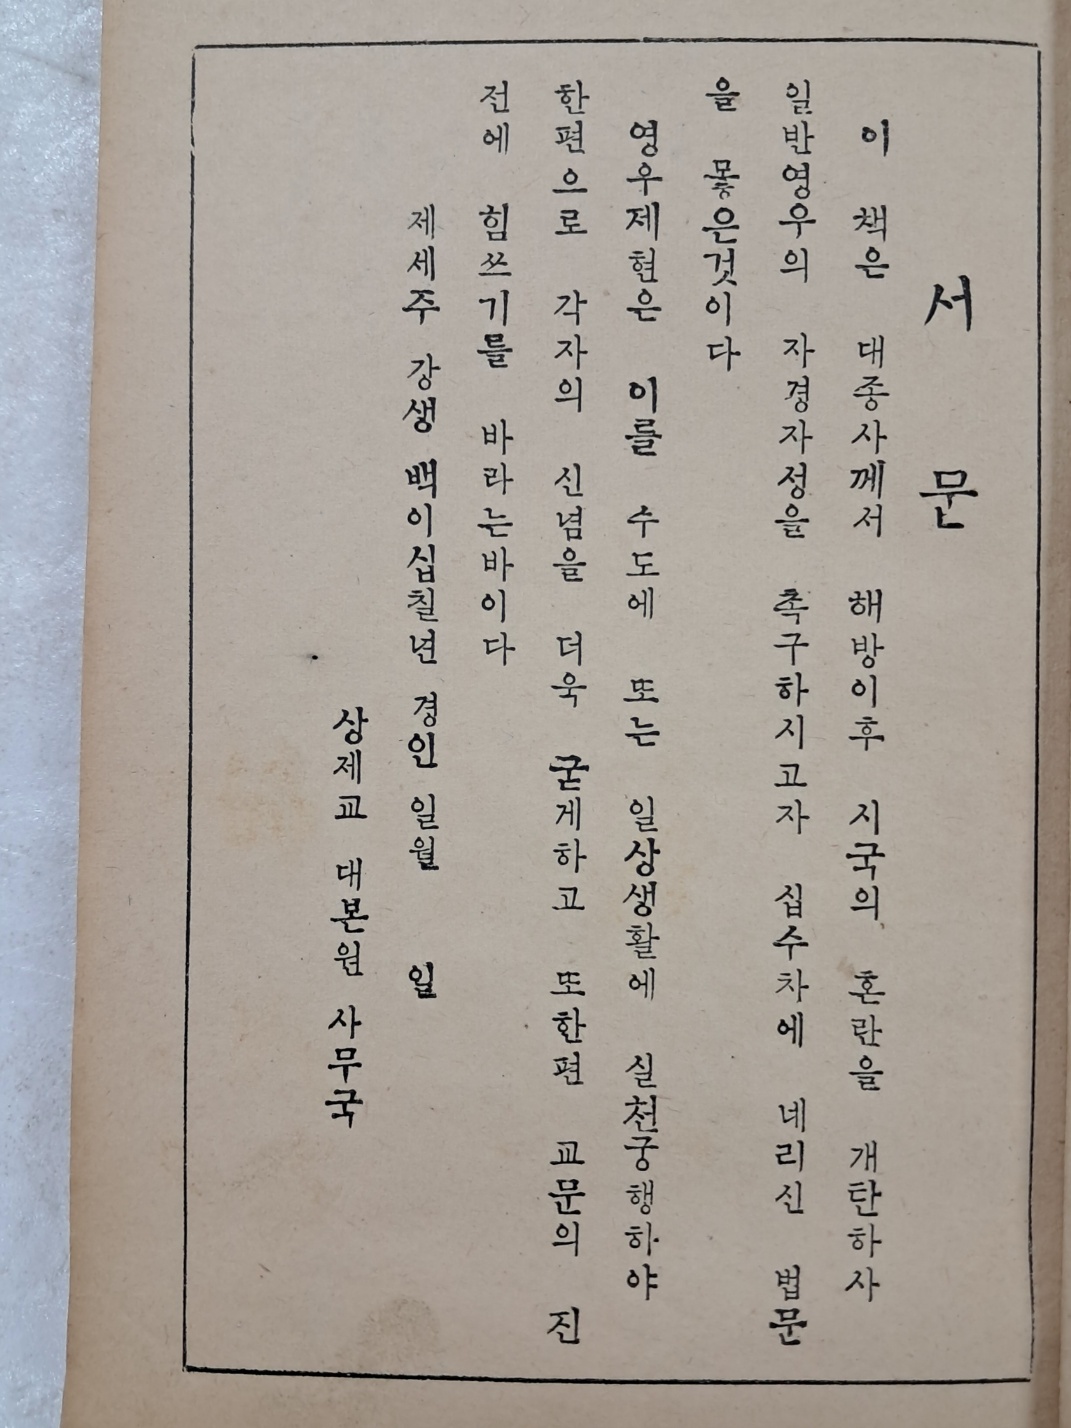 서 문
이 책은 대종사께서 해방이후 시국의 혼란을 개탄하사
일반영우의 자경자성을 촉구하시고자 십수차에 네리신 법문
을 뫃은것이다
영우제현은 이를 수도에 또는 일상생활에 실천궁행하야
한편으로 각자의 신념을 더욱 굳게하고 또한편 교문의 진
전에 힘쓰기를 바라는바이다
제세주 강생 백이십칠년 경인 일월 일
상제교 대본원 사무국